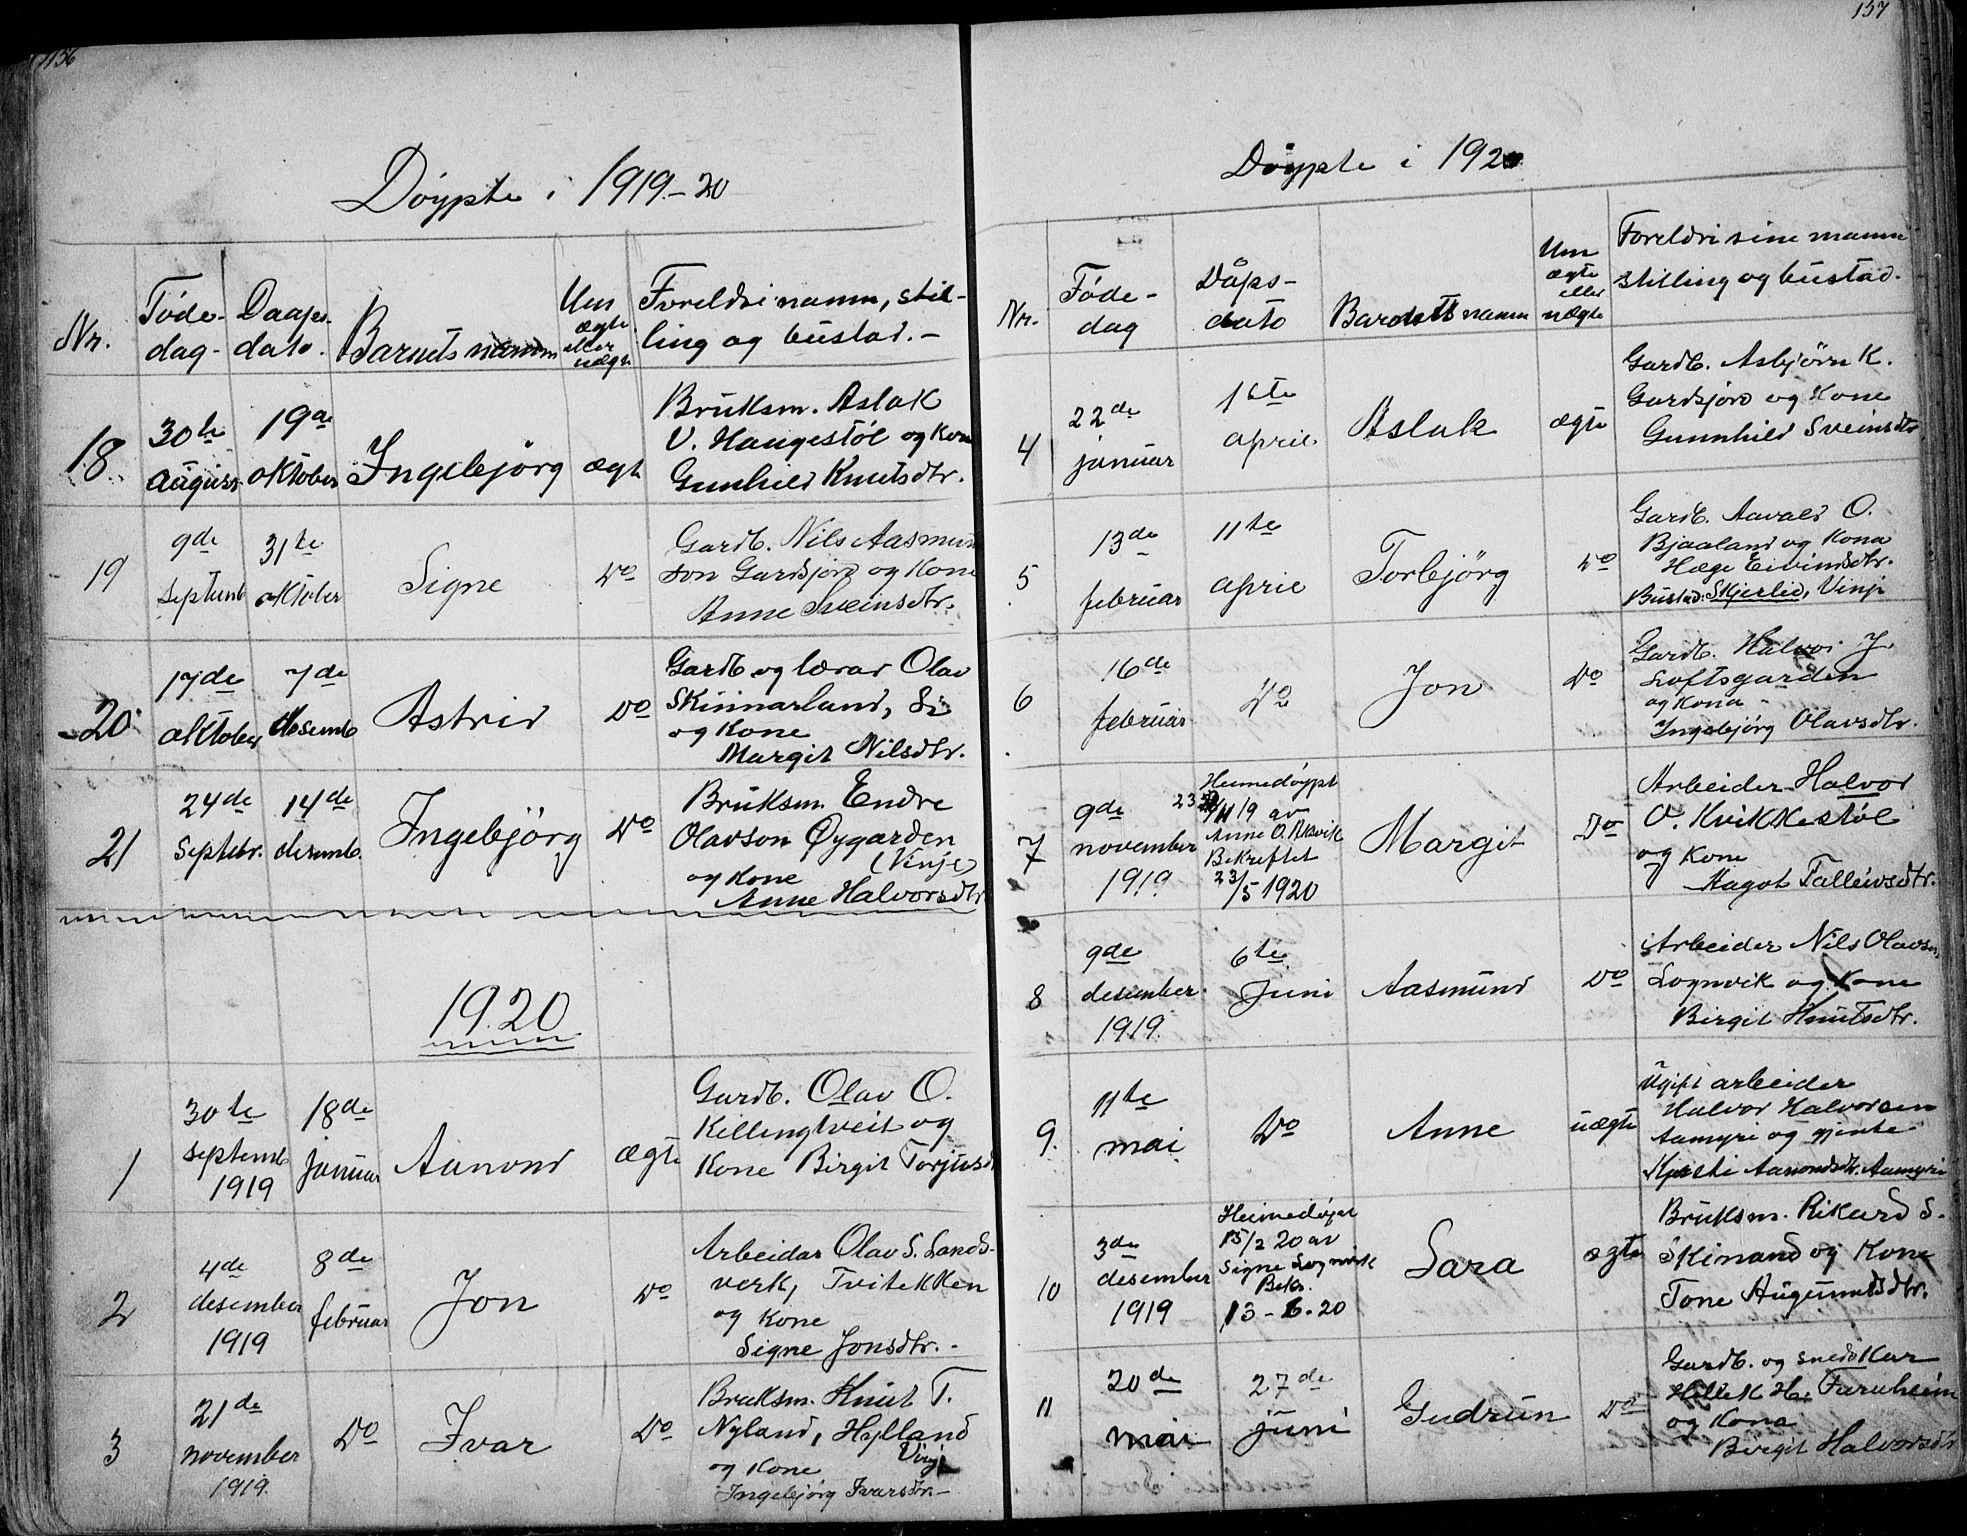 156
Döypte i 1919-20
Nr.
Föde-
dag-
Daaps-
dato.
Barnets namn
Um
ægte
eller
uægte
Foreldri namn, stil-
ling og bustad.-
18
30te
august
19de
oktober
Ingebjörg
ægte
Bruksm. Aslak
V. Haugestöl og Kone
Gunhild Knutsdtr.
19
9de
septemb
31te
oktober
Signe
do
Gardb. Nils Aasmund
son Gardsjord og Kone
Anne Sveinsdtr.
20
17de
oktober
7de
desemb
Astrid
do
Gardb og lærar Olav
Skinnarland,
og Kone
Margit Nilsdtr.
21
24de
septebr.
14de
desemb.
Ingebjörg
do
Bruksm. Endre
Olavson Øygarden
(Vinje)
og Kone
Anne Halvorsdtr
1920
1
30te
septemb
1919
18de
januar
Aanond
ægte
Gardb. Olav O.
Killingtveit og
Kone Birgit Torjusd
2
4de
desember
1919
8de
februar
Jon
do
Arbeidar Olav S. Lands-
verk, Tvitekken
og Kone
Signe Jonsdtr.-
3
21de
november
1919.
do
Ivar
do
Bruksm. Knut T.
Nyland, Hylland
Vinje
og Kone
Ingebjörg Ivarsdtr-
157
Döypte i 1920
Nr.
Föde-
dag
Dåps-
dato
Barnets namn
Um
ægte
eller
uægte
Foreldri sine namn
stilling og bustad.
4
22de
januar
1ste
april
Aslak
ægte
Gardb. Asbjörn K.
Gardsjord og Kone
Gunnhild Sveinsdtr
5
13de
februar
11te
april
Torbjörg
do
Gardb. Aavald O.
Bjaaland og Kona
Hæge Eivindsdtr.
Bustad: Skjerlid, Vinje
6
16de
februar
do
Jon
do
Gardb. Halvor J.
Loftsgarden
og Kona
Ingebjörg Olavsdtr.
7
9de
november
1919
Heimedöypt
23/11 19 av
Anne O. Aksvik
Bekreftet
23/5 1920
Margit
do
Arbeider Halvor
O. Kvikkestöl
og Kone
Hagot Talleivsdtr.
8
9de
desember
1919.
6te
Juni
Aasmund
do
Arbeider Nils Olavsen
Lognvik og Kone
Birgit Knutsdtr.
9.
11te
mai
do
Anne
uægte
Ugift arbeider
Halvor Halvorsen
Aamyri og gjente
Kjersti Aanondsdtr. Aamyri
10
3de
desember
1919
Heimedöypt
15/2 20 av
Signe Lognvik
Bekr.
13-6-20
Sara
ægte
Bruksm. Rikard S.
Skinand og Kone
Tone Augunnsdtr.
11
20de
mai
27de
juni
Gudrun
do
Gardb. og snedkar
Hellek H. Furuheim
og Kona
Birgit Halvorsdtr